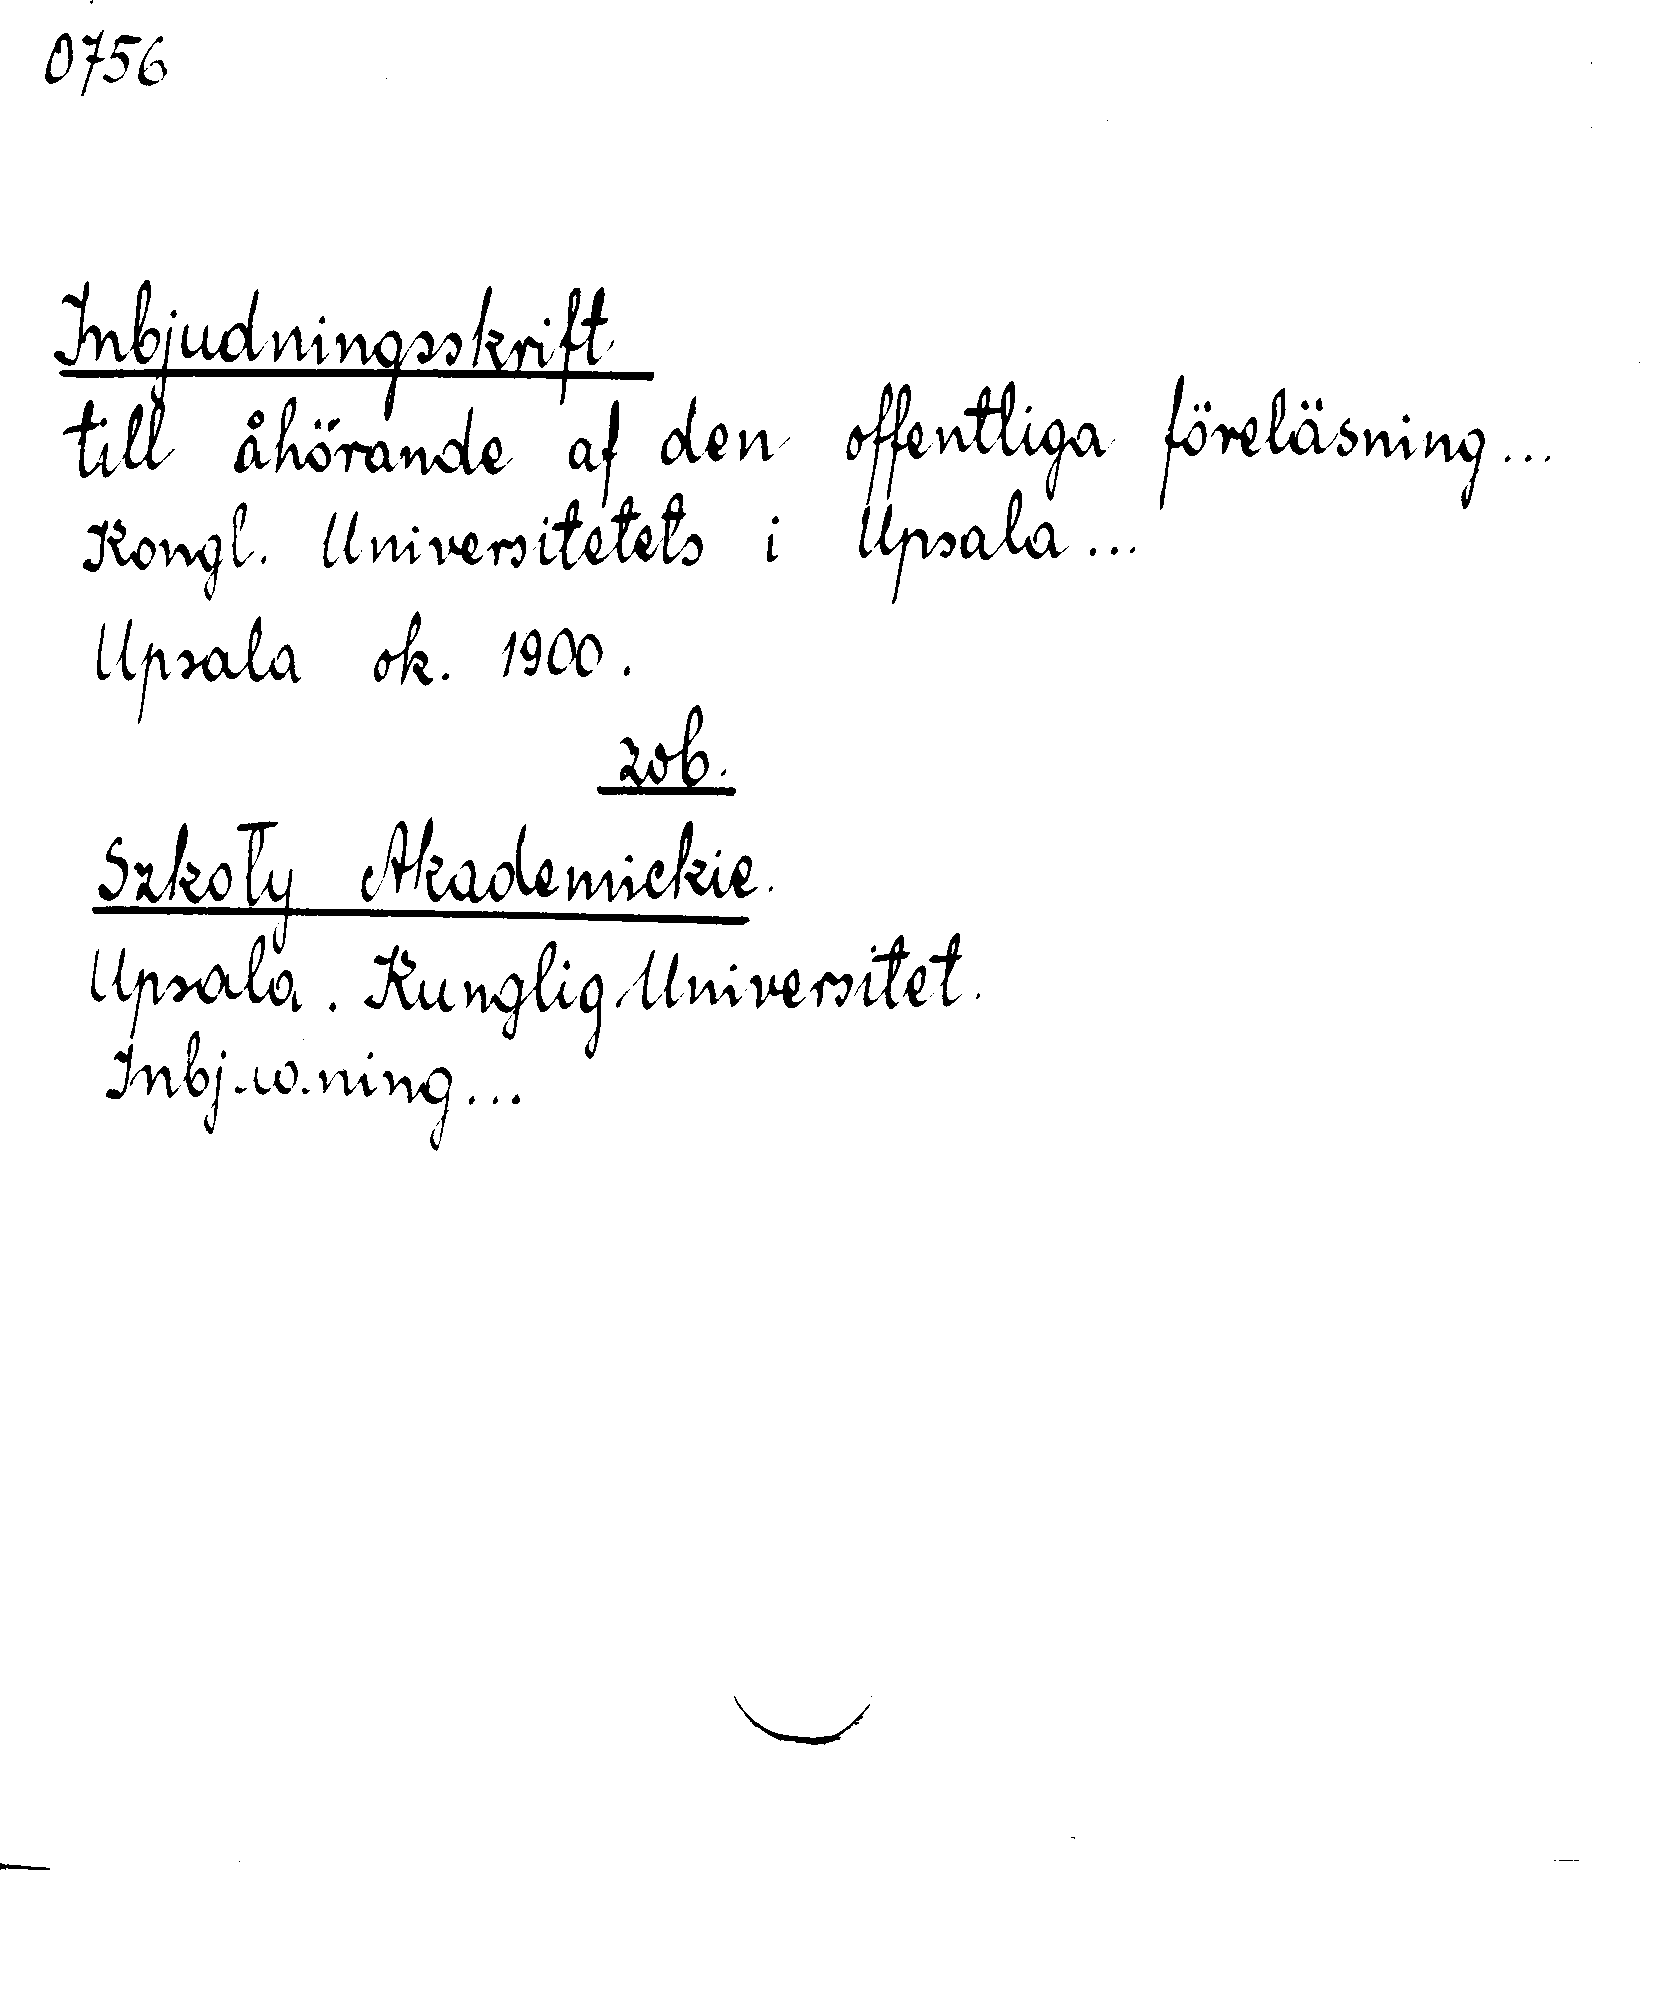 0756
Inbjudningsskrift
till åhörande af den offentliga föreläsning...
Kongl. Universitetets i Upsala...
Upsala ok. 1900.
zob.
Szkoły Akademickie.
Upsala. Kunglig Universitet.
Inbj.w.ning...